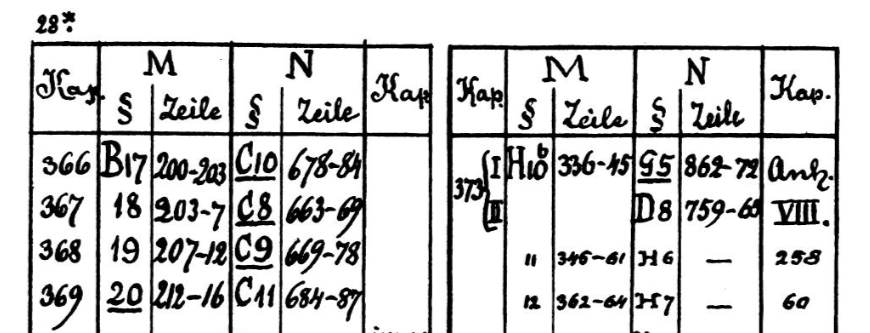 28*.
M N M N
Kap. § Zeile § Zeile Kap Kap § Zeile § Zeile Kap.
366 B17 200-203 C10 678-84 373 I H10b 336-45 G5 862-72 Anh.
367 18 203-7 C8 663-69 II D8 VIII.
368 19 207-12 C9 669-78 11 H6 — 258
369 20 212-16 C11 684-87 12 362-64 H7 — 60